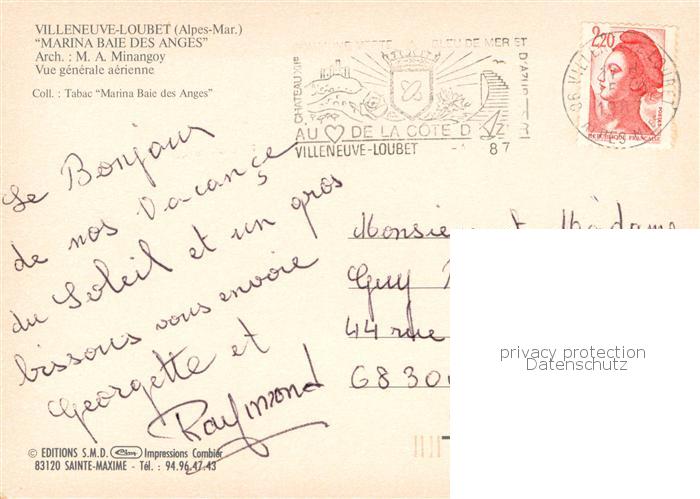 VILLENEUVE-LOUBET (Alpes-Mar.)
"MARINA BAIE DES ANGES"
Arch. : M. A. Minangoy
Vue générale aérienne
Coll. : Tabac "Marina Baie des Anges"
BLEU DE MER ET
D'AZUR
CHATEAU XIIe
AU ♡ DE LA COTE D'AZUR
VILLENEUVE-LOUBET
87
2,20
REPUBLIQUE FRANÇAISE
Le Bonjour
de nos Vacançe
du Soleil et un gros
bissous vous envoie
Georgette et
Raymond
Monsieur et Madame
Guy
44 rue
6830
privacy protection
Datenschutz
© EDITIONS S.M.D. Cim Impressions Combier
83120 SAINTE-MAXIME - Tél. : 94.96.47.43